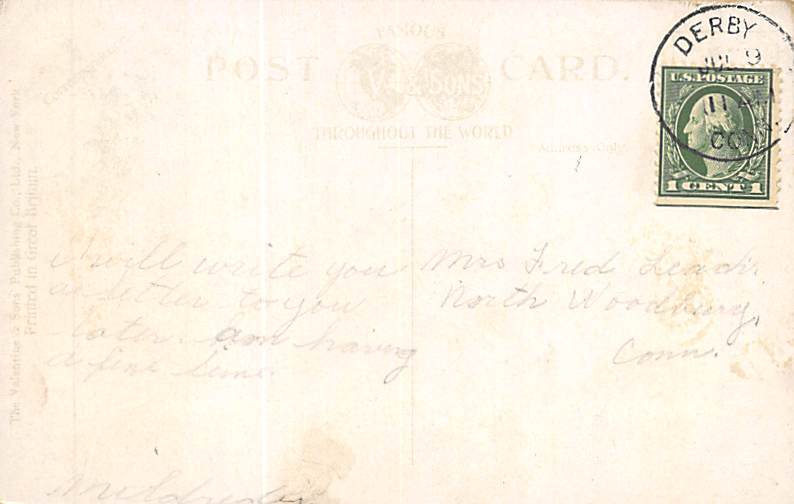 FAMOUS
POST CARD.
& SONS
THROUGHOUT THE WORLD
Address Only.
The Valentine & Sons Publishing Co., Ltd., New York
Printed in Great Britain.
DERBY
JUL 9
11 AM
CONN.
U.S. POSTAGE
1 CENT 1
I will write you
a letter to you
later. am having
a fine time
Mildred
Mrs Fred Leach,
North Woodbury,
Conn.